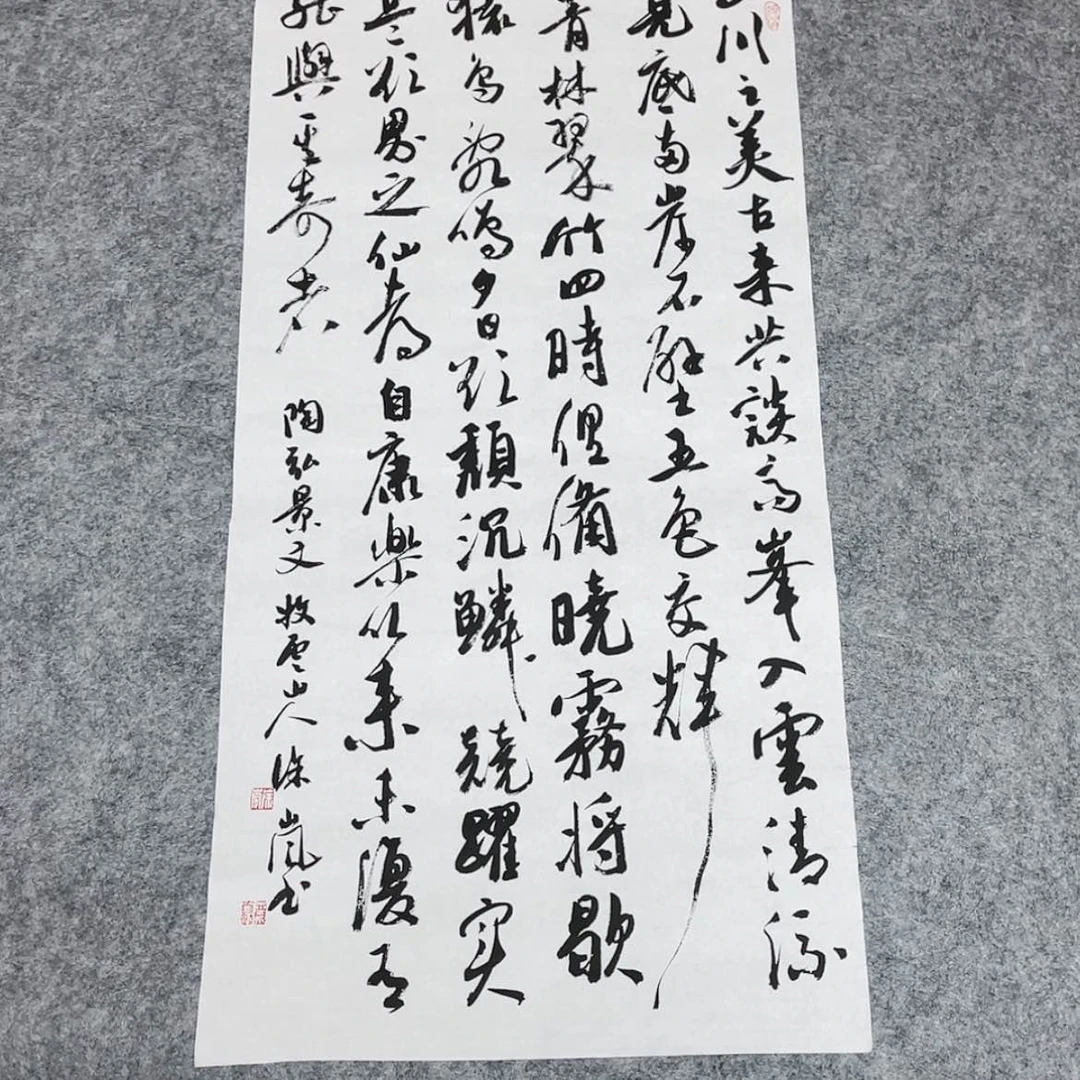 山川之美古来共談高峯入雲清流
見底两岸石壁五色交輝
青林翠竹四時俱備曉霧将歇
猿鳥亂鳴夕日欲頹沉鱗競躍实
是欲界之仙都自康樂以来未復有
能與其奇者
陶弘景文牧雲山人徐嵐书